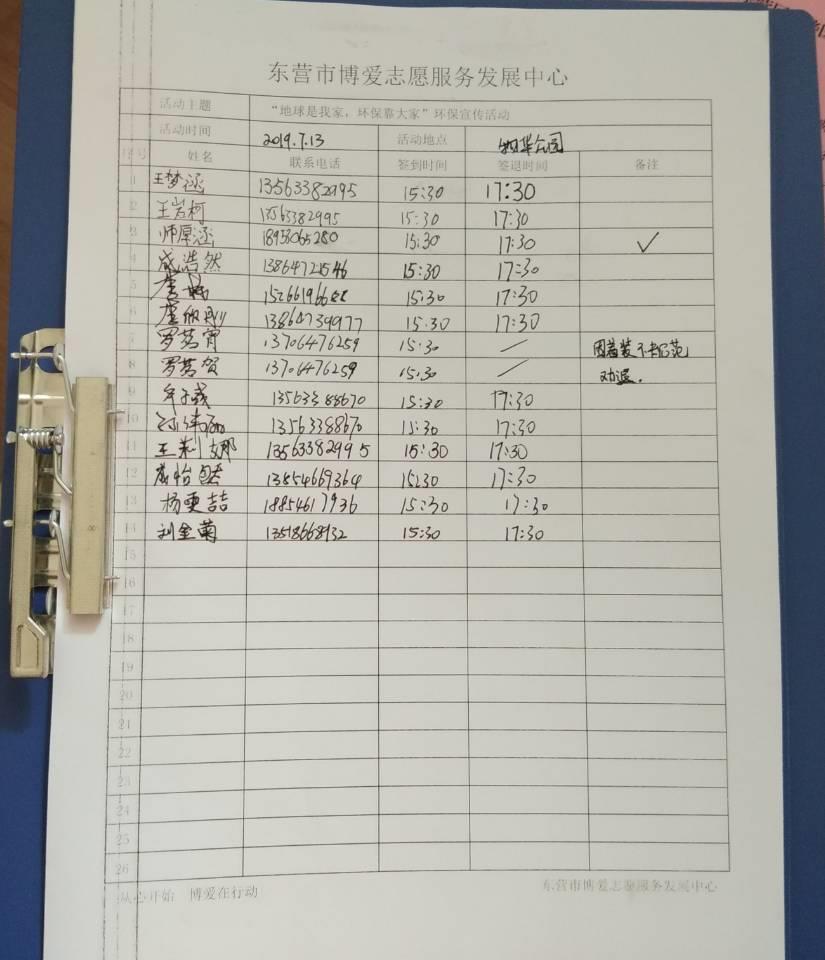 东营市博爱志愿服务发展中心
活动主题 “地球是我家，环保靠大家”环保宣传活动
活动时间 2019.7.13 活动地点 公园
序号 姓名 联系电话 签到时间 签退时间 备注
1 王梦涵 13563382995 15:30 17:30
2 王岩柯 13563382995 15:30 17:30
3 师厚涵 18953065280 15:30 17:30 ✓
4 成浩然 15:30 17:30
5 15:30 17:30
6 13864739977 15:30 17:30
7 罗茗宵 13706476259 15:30 / 因着装不规范
8 罗茗贺 13706476259 15:30 / 劝退.
9 13563388670 15:30 17:30
10 13563388670 15:30 17:30
11 王莉娜 13563382995 15:30 17:30
12 成怡 13854669364 15:30 17:30
13 杨雯喆 18854617936 15:30 17:30
14 刘金菊 13518668932 15:30 17:30
15
16
17
18
19
20
21
22
23
24
25
26
从心开始 博爱在行动 东营市博爱志愿服务发展中心